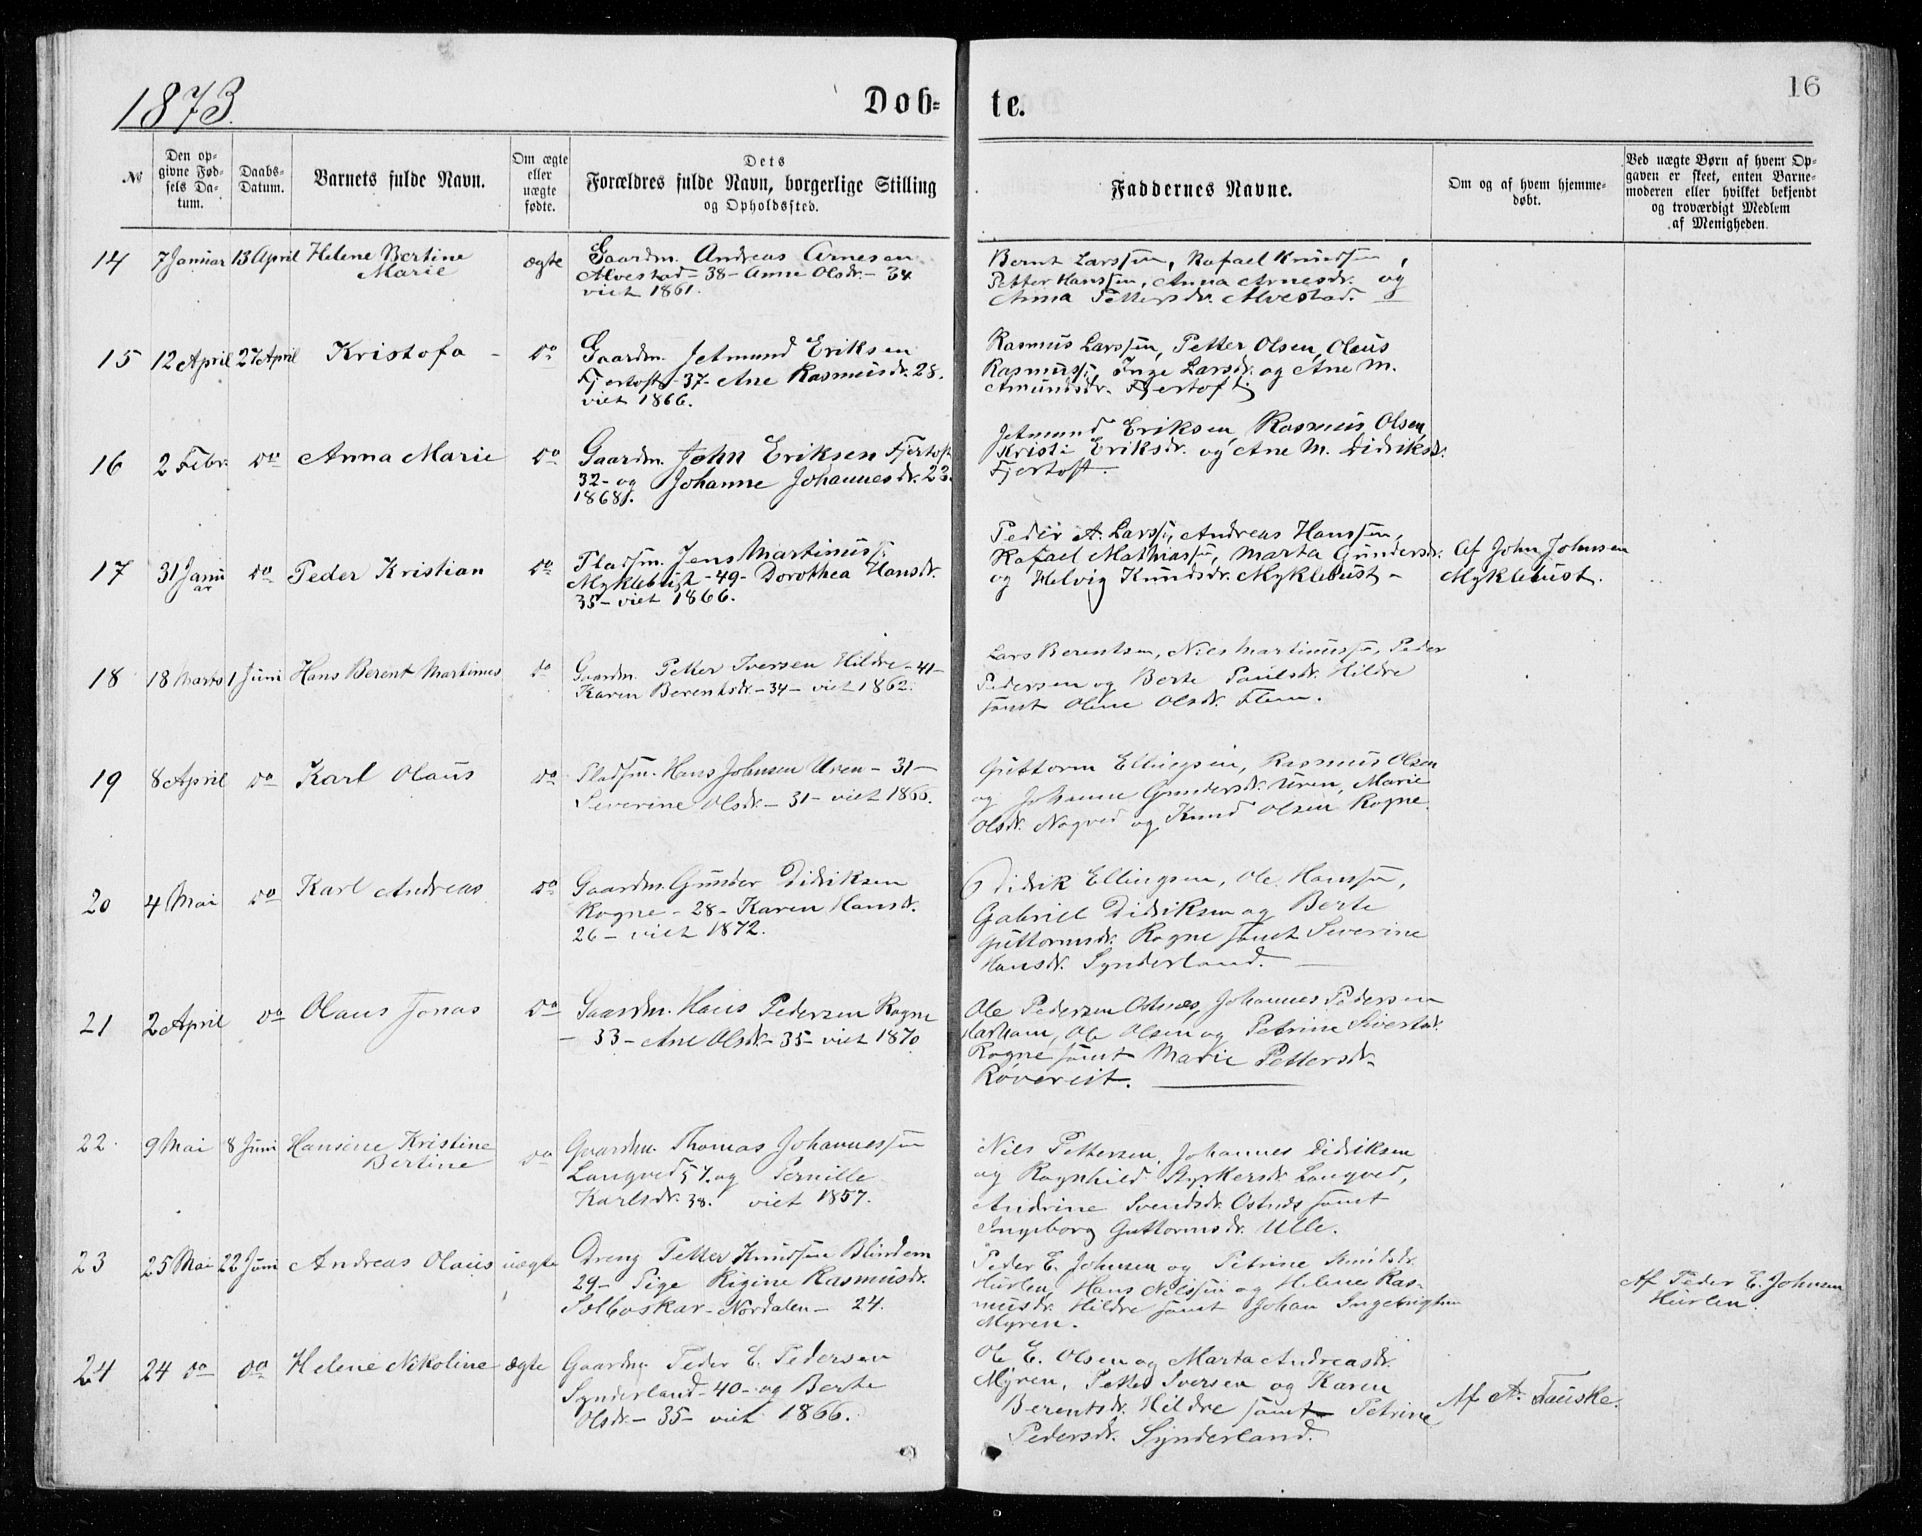 1873.
Døb-
te.
16
№
Den op-
givne Fød-
sels Da-
tum.
Daabs-
Datum.
Barnets fulde Navn.
Om ægte
eller
uægte
fødte.
Dets
Forældres fulde Navn, borgerlige Stilling
og Opholdssted.
Faddernes Navne.
Om og af hvem hjemme-
døbt.
Ved uægte Børn af hvem Op-
gaven er skeet, enten Barne-
moderen eller hvilket bekjendt
og troværdigt Medlem
af Menigheden.
14 7 Januar 13 April Helene Bertine
Marie
ægte
Gaardm. Andreas Arnesen
Alvestad - 38 - Anne Olsdr. - 34
viet 1861.
Bernt Larssen, Rafael Knudssen,
Petter Hanssen, Anna Arnesdr. og
Anna Pettersdr. Alvestad.
15 12 April 27 April Kristofa - do
Gaardm. Jetmund Eriksen
Fjertoft - 37 - Ane Rasmusdr. 28.
viet 1866.
Rasmus Larssen, Petter Olsen, Olaus
Rasmuss., Inge Larsdr. og Ane M.
Amundsdr. Fjertoft.
16 2 Febr. do Anna Marie do
Gaardm. John Eriksen Fjertoft
32 - og Johanne Johannesdr. 23.
1868.
Jetmund Eriksen, Rasmus Olsen,
Kristi Eriksdr. og Ane M. Didriksdr.
Fjertoft.
17 31 Janu
ar
do Peder Kristian do
Pladsm. Jens Martinuss.
Myklebust - 49 - Dorothea Hansdr.
35 - viet 1866.
Peder A. Larss., Andreas Hanssen,
Rafael Mathiassen, Marta Gundersdr.
og Helvig Knudsdr. Myklebust -
Af John Johnsen
Myklebust.
18 18 Marts 1 Juni Hans Berent Martinus do
Gaardm. Petter Iversen Hildre - 41 -
Karen Berentsdr. - 34 - viet 1862.
Lars Berentsen, Nils Martinussen, Peder
Pedersen og Berte Paulsdr. Hildre
samt Oline Olsdr. Flem.
19 8 April do Karl Olaus do
Pladsm. Hans Johnsen Uren - 31 -
Severine Olsdr. - 31 - viet 1866.
Guttorm Ellingsen, Rasmus Olsen
og Johanne Gundersdr. Uren, Marie
Olsdr. Nogved og Knud Olsen Rogne.
20 4 Mai do Karl Andreas do
Gaardm. Gunder Didriksen
Rogne - 28 - Karen Hansdr.
26 - viet 1872.
Didrik Ellingsen, Ole Hanssen,
Gabriel Didriksen og Berte
Guttormsdr. Rogne samt Severine
Hansdr. Synderland.
21 2 April do Olaus Jonas do
Gaardm. Hans Pedersen Rogne
- 33 - Ane Olsdr. - 35 - viet 1870.
Ole Pedersen Ostnes, Johannes Pedersen
Harham, Ole Olsen og Petrine Sivertsdr.
Rogne samt Marie Pettersdr.
Røverist.
22. 9 Mai 8 Juni Hansine Kristine
Bertine
do
Gaardm. Thomas Johannessen
Longved 51. og Pernille
Karlsdr. 38. viet 1857.
Nils Pettersen, Johannes Didriksen
og Ragnhild Styrkersdr. Longved,
Andrine Svendsdr. Ostnes samt
Ingeborg Guttormsdr. Ulle.
23 25 Mai 22 Juni Andreas Olaus uægte
Dreng Petter Knudsen Blindem
29 - Pige Rigine Rasmusdr.
Sælboskar - Nordalen - 24.
Peder E. Johnsen og Petrine Knutsdr.
Hurlen, Hans Nilssen og Helene Ras-
musdr. Hildre samt Johan Ingebrigtsen
Myren.
Af Peder E. Johnsen
Hurlen.
24 24 do do Helene Nikoline ægte
Gaardm. Peder E. Pedersen
Synderland - 40 - og Berte
Olsdr. - 35 - viet 1866.
Ole E. Olsen og Marta Andreasdr.
Myren, Petter Iversen og Karen
Berentsdr. Hildre samt Petrine
Pedersdr. Synderland.
Af A. Fauske.